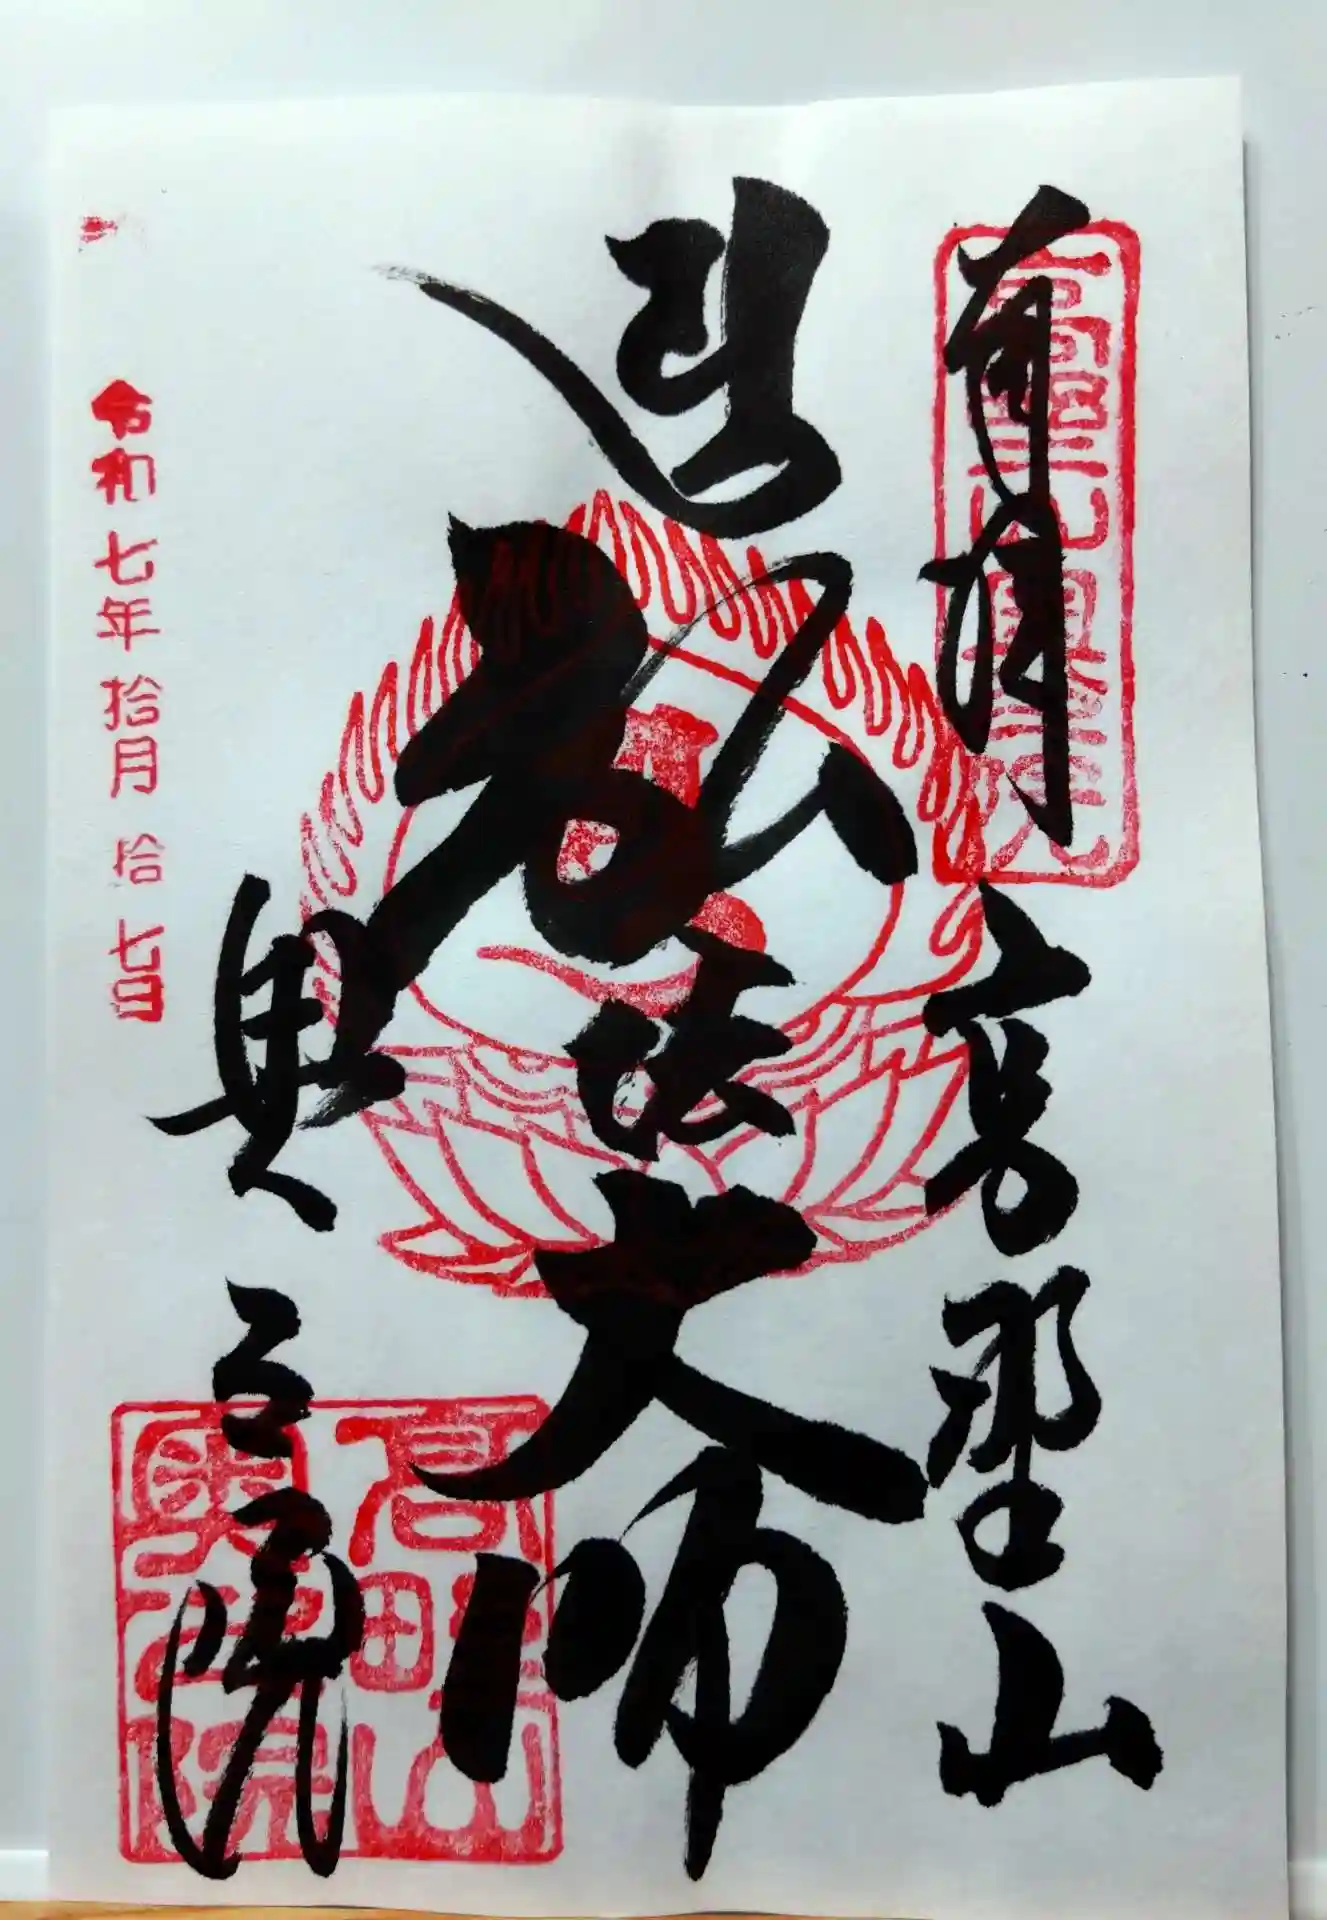 奉拝 高野山
弘法大師
奥之院
高野山
奥之院
令和七年拾月拾七日